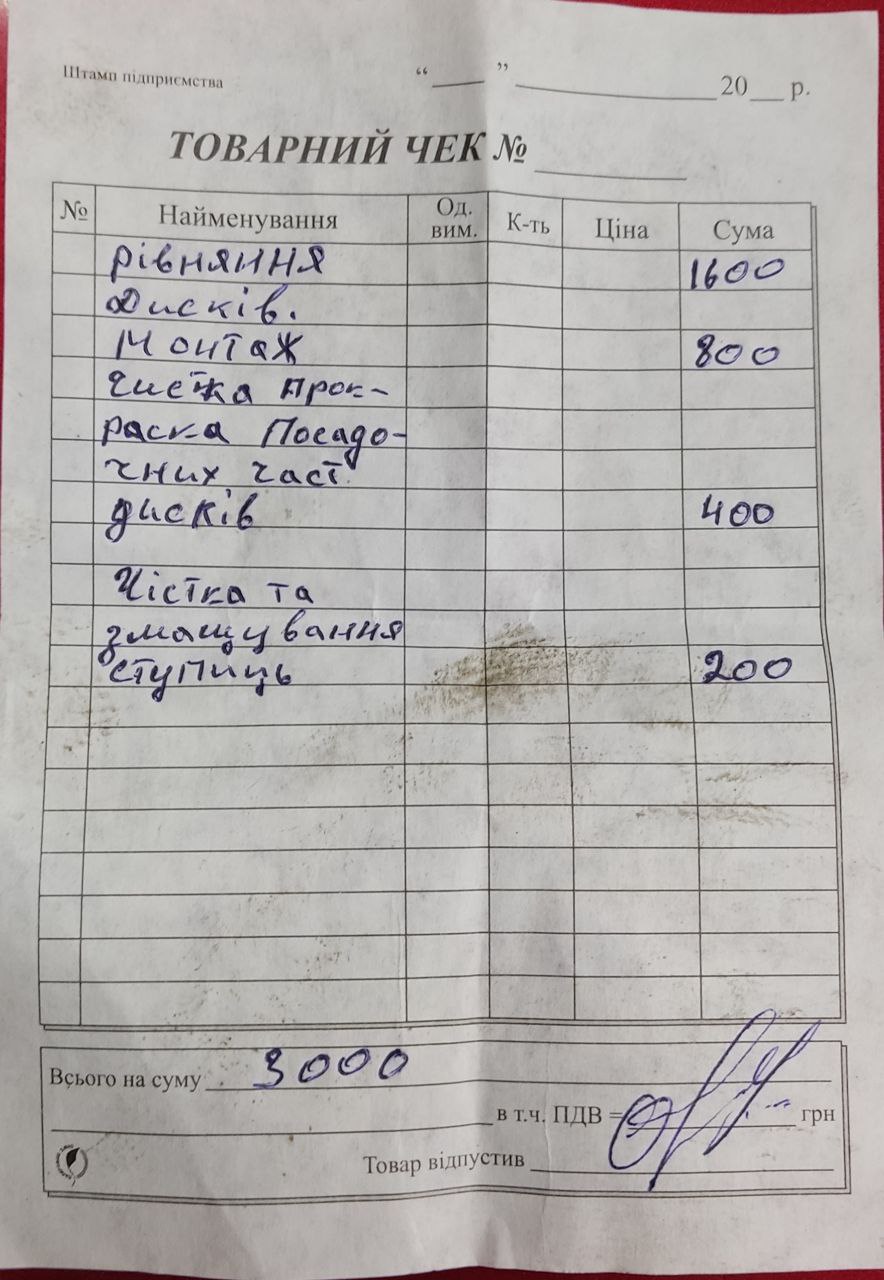 Штамп підприємства “___” ____________ 20__ р.
ТОВАРНИЙ ЧЕК №
№ Найменування Од. вим. К-ть Ціна Сума
Рівняння 1600
Дисків.
Монтаж 800
Чистка Прок-
раска Посадо-
чних част.
дисків 400
Чістка та
змащування
ступиць 200
Всього на суму 3000
в т.ч. ПДВ = грн
Товар відпустив